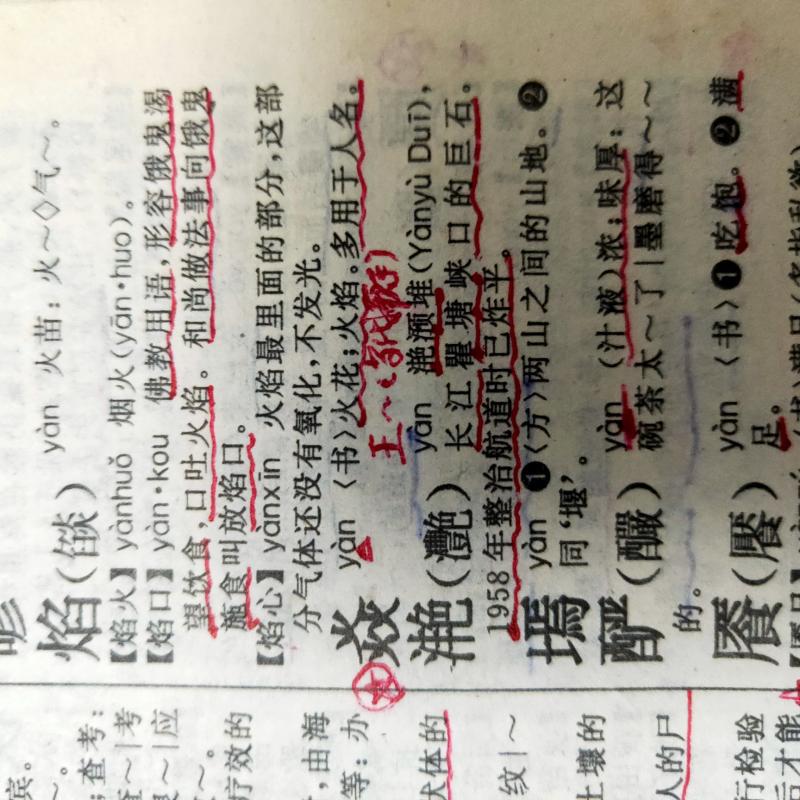 焰（燄） yàn 火苗：火～◇气～。
【焰火】yànhuǒ 烟火(yān·huo)。
【焰口】yàn·kou 佛教用语，形容饿鬼渴
望饮食，口吐火焰。和尚做法事向饿鬼
施食叫放焰口。
【焰心】yànxīn 火焰最里面的部分，这部
分气体还没有氧化，不发光。
焱 yàn〈书〉火花；火焰。多用于人名。
王～
滟（灧） yàn 滟滪堆(Yànyù Duī)，
长江瞿塘峡口的巨石。
1958年整治航道时已炸平。
墕 yàn ❶〈方〉两山之间的山地。❷
同‘堰’。
酽（釅） yàn （汁液）浓；味厚：这
碗茶太～了｜墨磨得～～
的。
餍（饜） yàn〈书〉❶吃饱。❷满
足。
宾。
～。
；查考：
～｜考
～｜应
～。
疗效的
，由海
等：办
伏体的
纹｜～
土壤的
人的尸
行检验
后才能